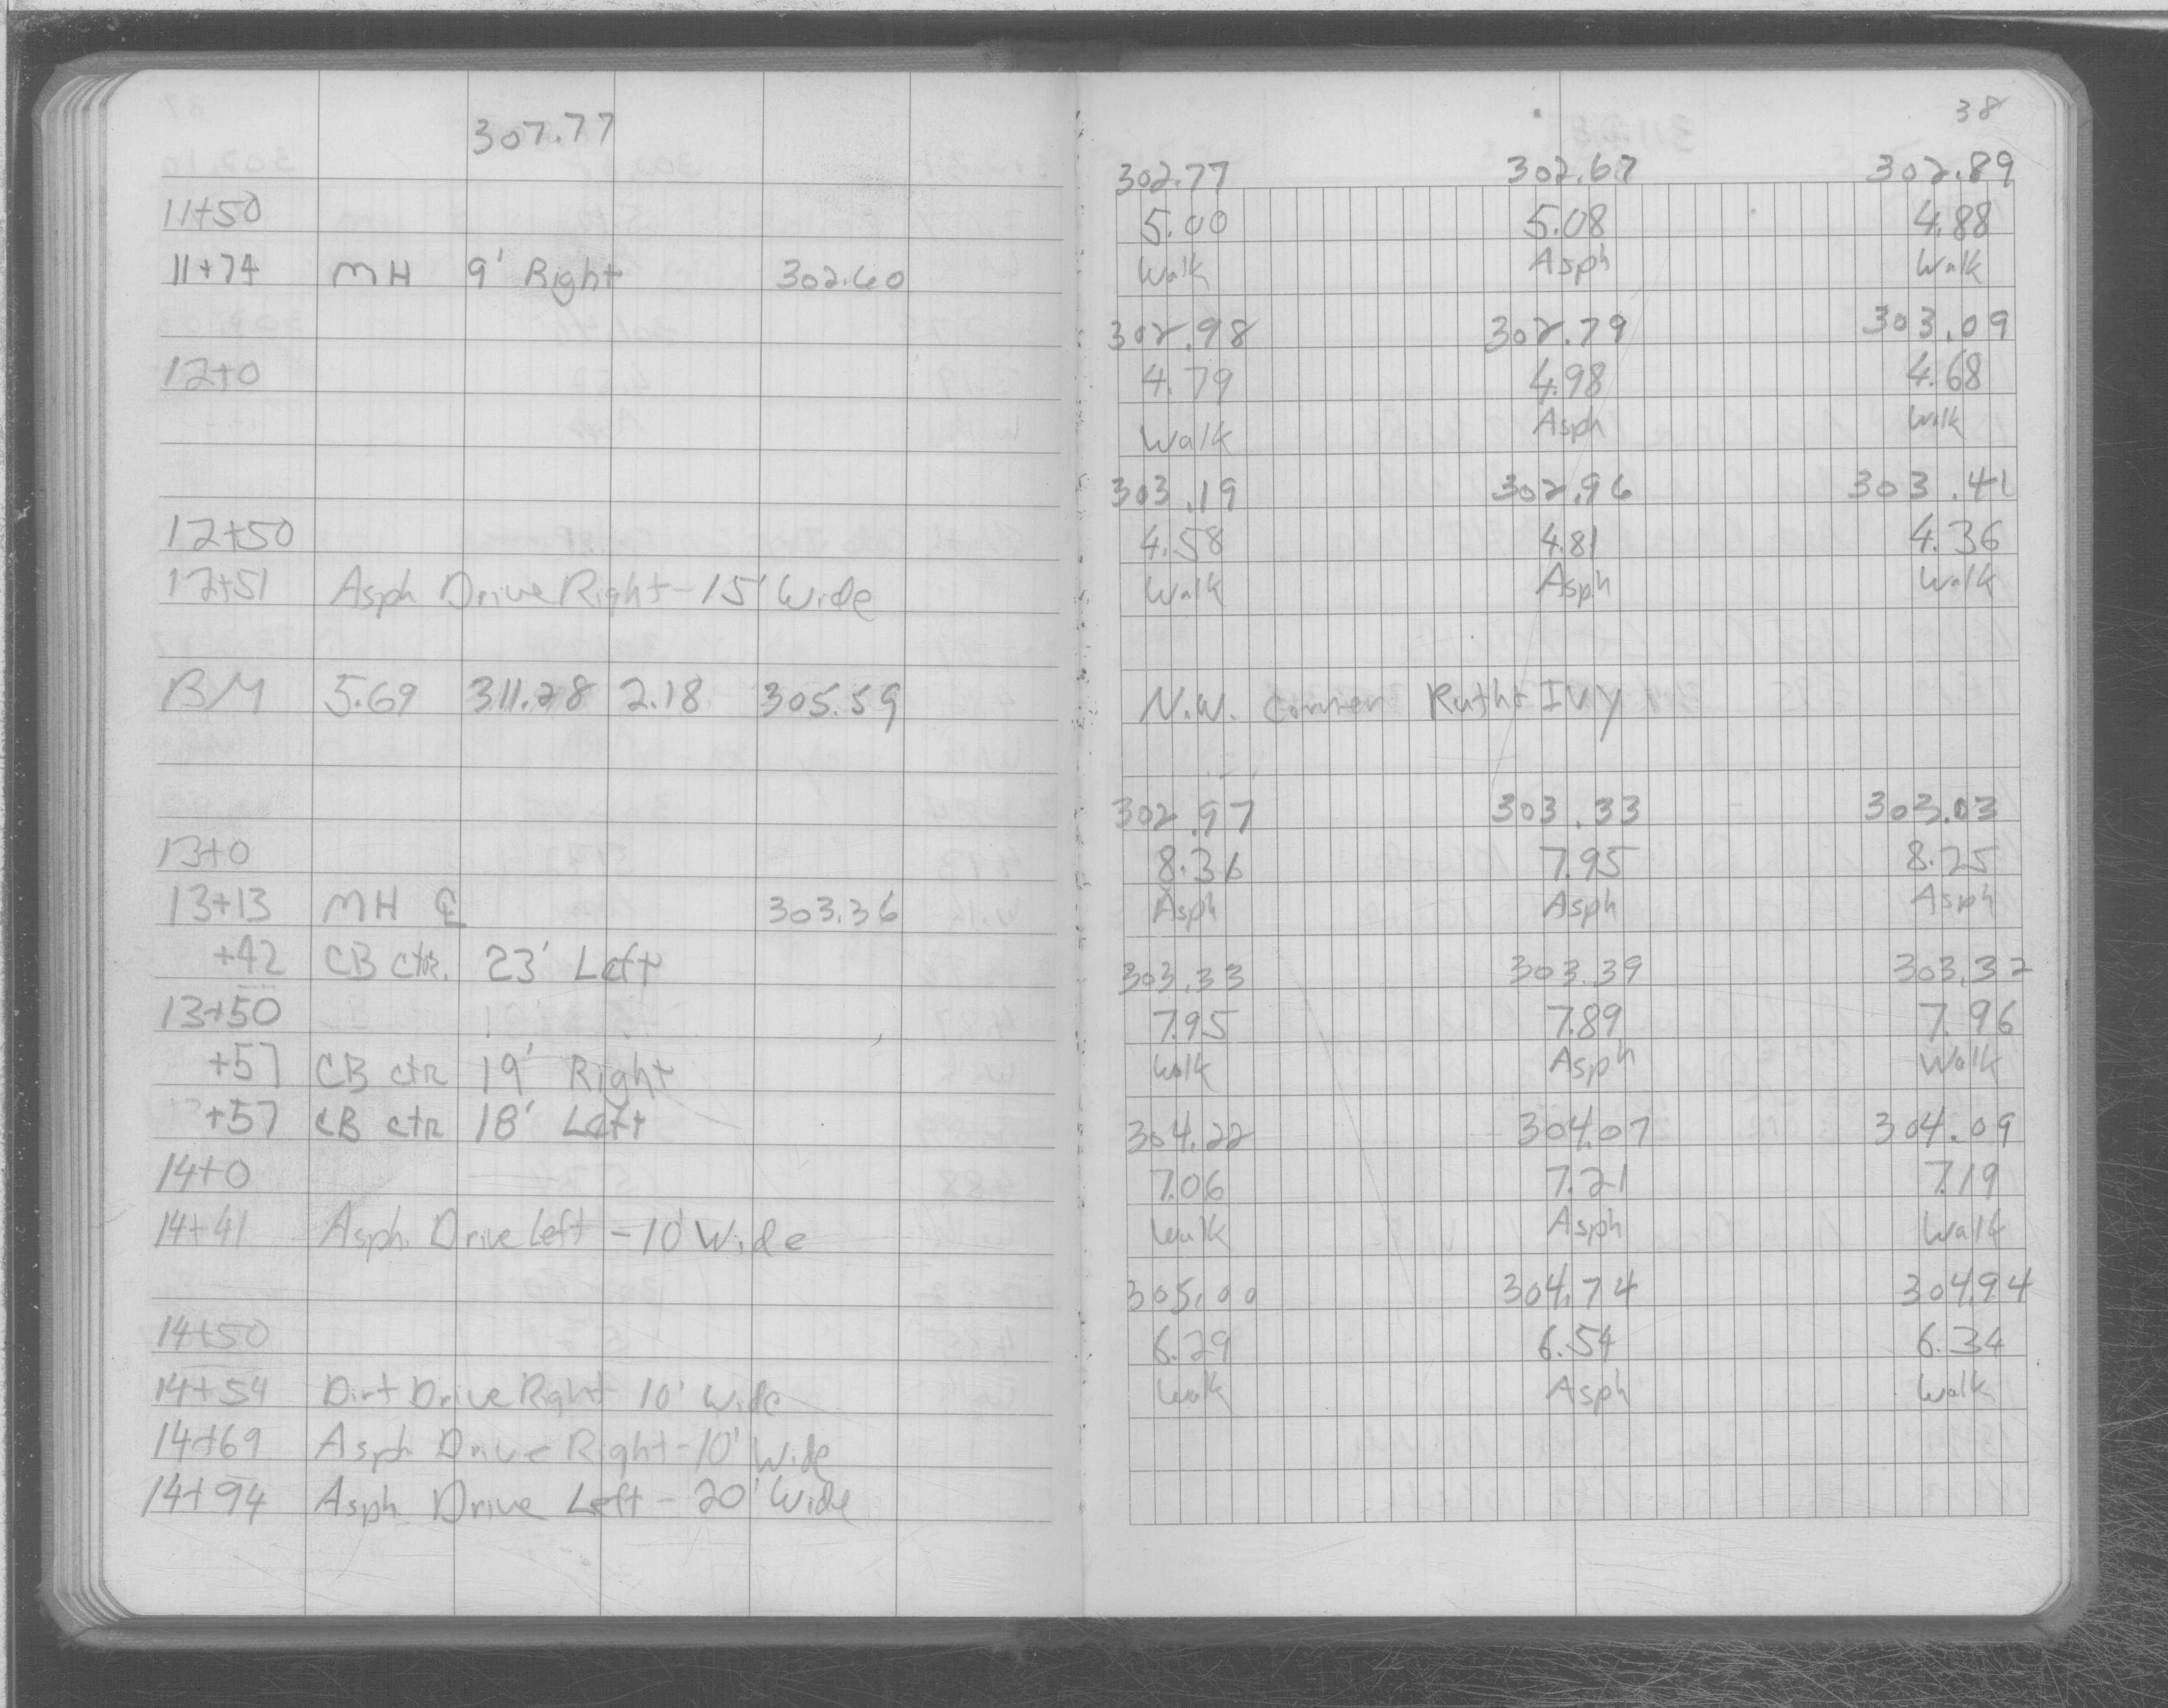 307.77
11+50
11+74 MH 9' Right 302.60
12+0
12+50
12+51 Asph Drive Right - 15' Wide
BM 5.69 311.28 2.18 305.59
13+0
13+13 MH ℄ 303.36
+42 CB ctr. 23' Left
13+50
+57 CB ctr 19' Right
+57 CB ctr 18' Left
14+0
14+41 Asph. Drive Left - 10' Wide
14+50
14+54 Dirt Drive Right 10' Wide
14+69 Asph Drive Right - 10' Wide
14+94 Asph Drive Left - 20' Wide
38
302.77 302.67 302.89
5.00 5.08 4.88
Walk Asph Walk
302.98 302.79 303.09
4.79 4.98 4.68
Walk Asph Walk
303.19 302.96 303.41
4.58 4.81 4.36
Walk Asph Walk
N.W. Corner Ruth + Ivy
302.97 303.33 303.03
8.36 7.95 8.25
Asph Asph Asph
303.33 303.39 303.32
7.95 7.89 7.96
Walk Asph Walk
304.22 304.07 304.09
7.06 7.21 7.19
Walk Asph Walk
305.00 304.74 304.94
6.29 6.54 6.34
Walk Asph Walk